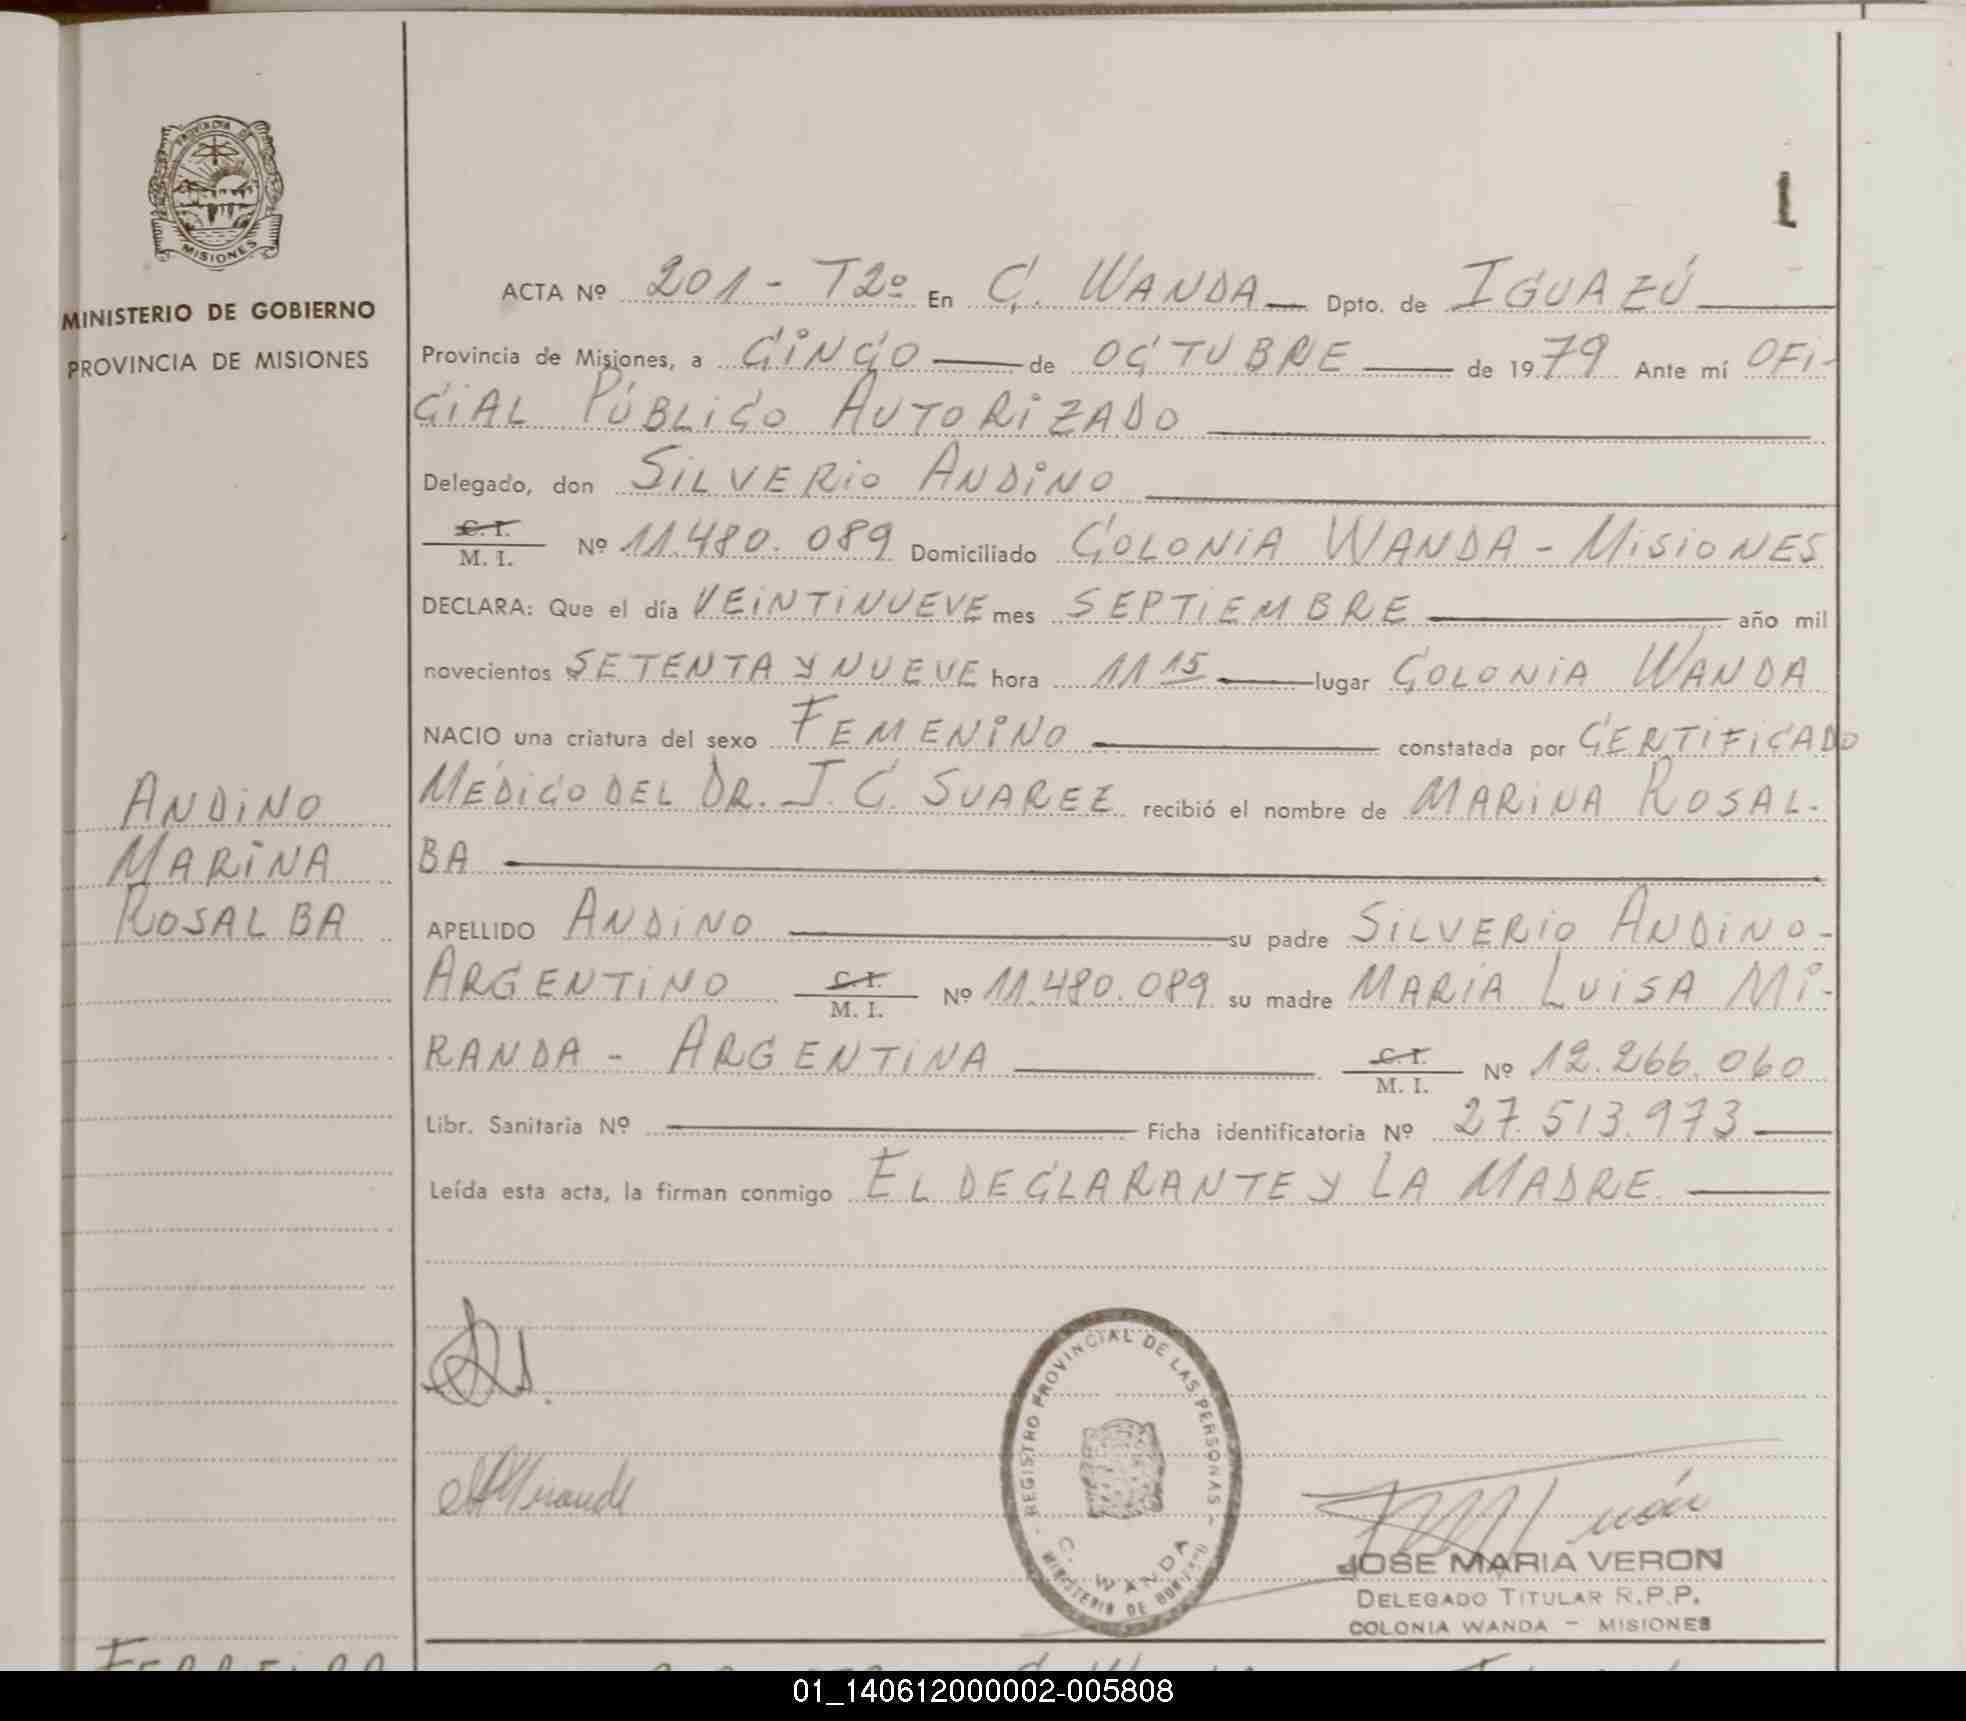 PROVINCIA DE
MISIONES
MINISTERIO DE GOBIERNO
PROVINCIA DE MISIONES
ANDINO
MARINA
ROSALBA
ACTA Nº 201 - T2º En C. WANDA Dpto. de IGUAZÚ
Provincia de Misiones, a CINCO de OCTUBRE de 1979 Ante mí OFI-
CIAL PÚBLICO AUTORIZADO
Delegado, don SILVERIO ANDINO
C. I.
M. I. Nº 11.480.089 Domiciliado COLONIA WANDA - MISIONES
DECLARA: Que el día VEINTINUEVE mes SEPTIEMBRE año mil
novecientos SETENTA Y NUEVE hora 11 15 lugar COLONIA WANDA
NACIO una criatura del sexo FEMENINO constatada por CERTIFICADO
MÉDICO DEL DR. J. C. SUAREZ recibió el nombre de MARINA ROSAL-
BA
APELLIDO ANDINO su padre SILVERIO ANDINO-
ARGENTINO C. I. M. I. Nº 11.480.089 su madre MARÍA LUISA MI-
RANDA - ARGENTINA C. I. M. I. Nº 12.266.060
Libr. Sanitaria Nº Ficha identificatoria Nº 27.513.973
Leída esta acta, la firman conmigo EL DECLARANTE Y LA MADRE
REGISTRO PROVINCIAL DE LAS PERSONAS -
C. WANDA
MINISTERIO DE GOBIERNO
JOSE MARIA VERON
DELEGADO TITULAR R.P.P.
COLONIA WANDA - MISIONES
01_140612000002-005808